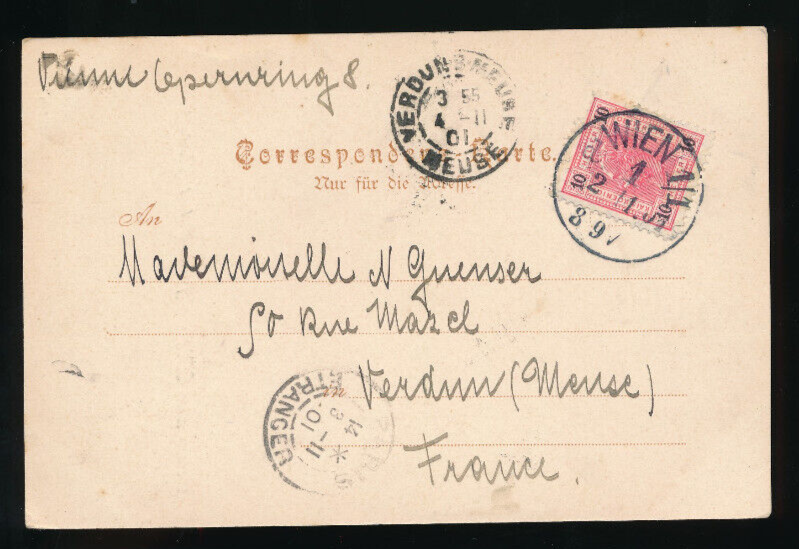 Vienne Opernring 8.
VERDUN-S-MEUSE
3 55
4 -11
01
MEUSE
Correspondenz-Karte.
Nur für die Adresse.
10 10
10 10
WIEN
1
2 11.01
8 9V
An
Mademoiselle N Guenser
50 Rue Mazel
in Verdun (Meuse)
France.
ETRANGER
14 *
3 -11
01